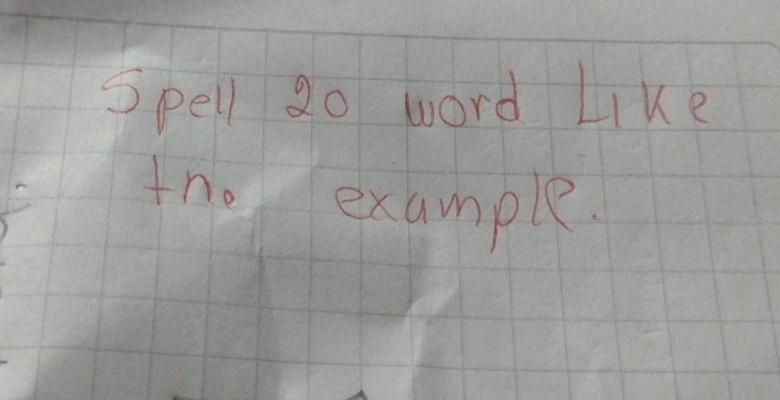 Spell 20 word Like
the example.